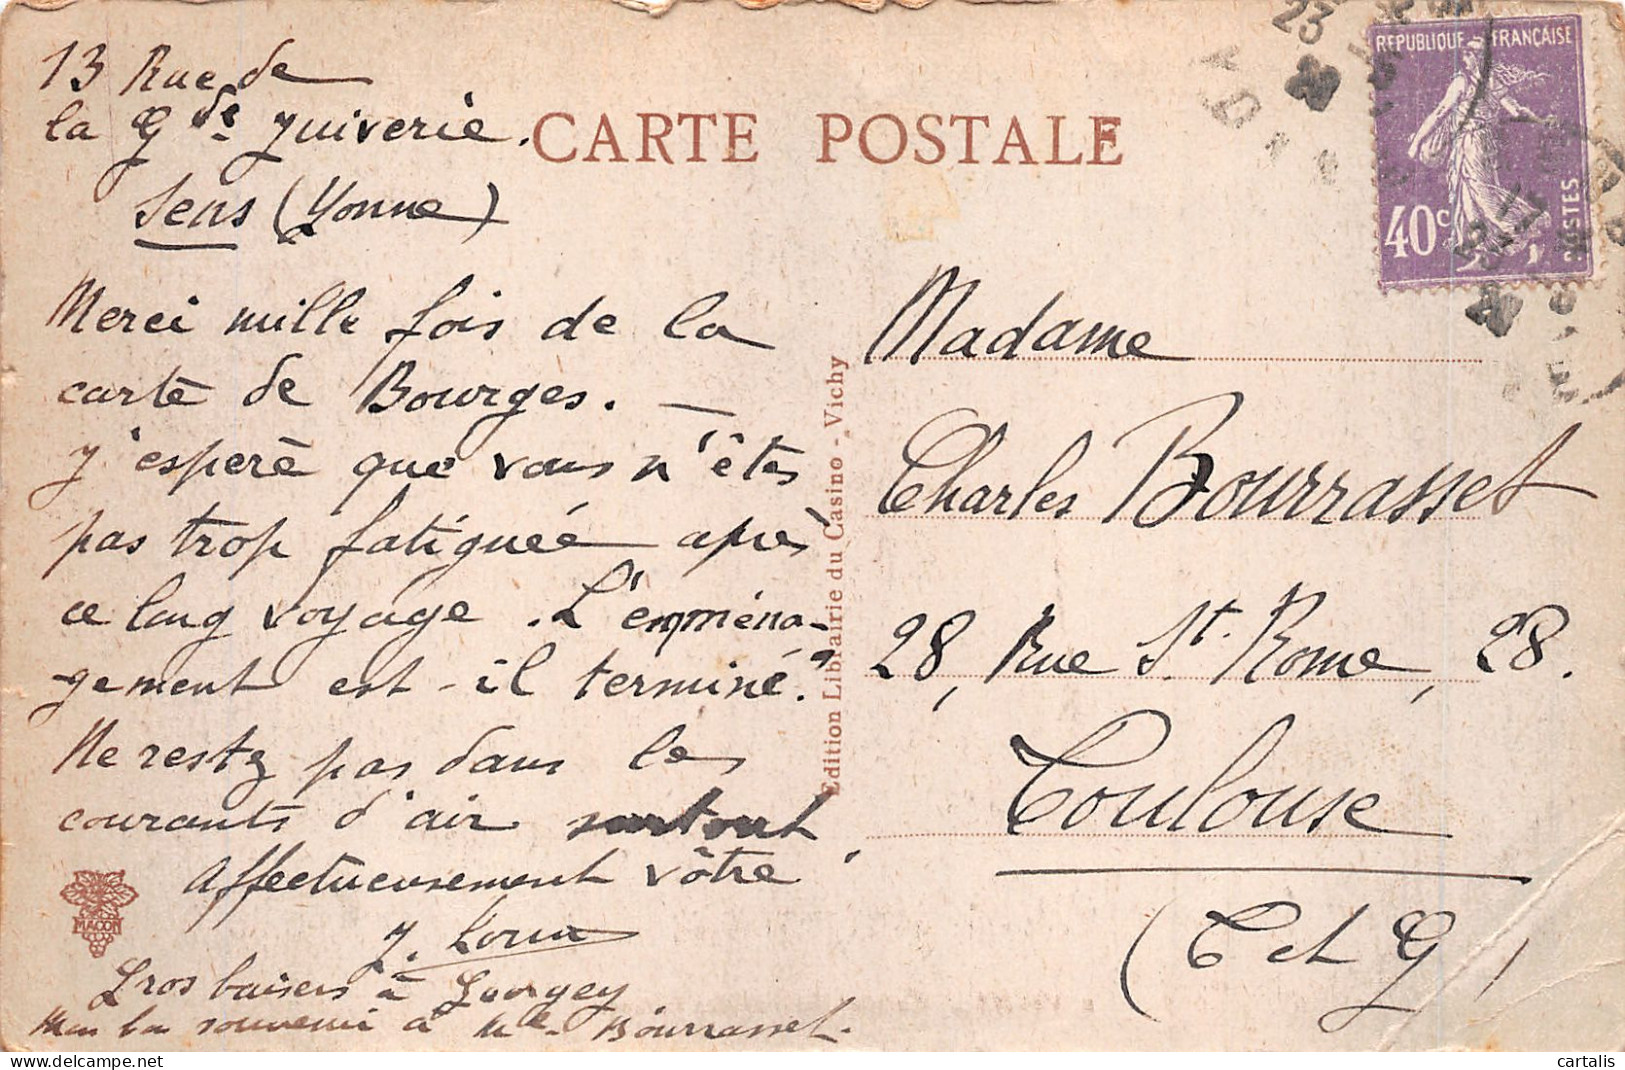 13 Rue de
la Gde Juiverie.
Sens (Yonne)
CARTE POSTALE
REPUBLIQUE FRANÇAISE
40c
POSTES
Merci mille fois de la
carte de Bourges. —
J'espère que vous n'êtes
pas trop fatiguée après
ce long voyage. L'emména-
gement est-il terminé?
Ne restez pas dans les
courants d'air surtout.
Affectueusement vôtre
Gros baisers à
souvenir à Me Bourrasset.
MACON
Edition Librairie du Casino - Vichy
Madame
Charles Bourrasset
28, Rue St. Rome, 28.
Toulouse
(T et G)
cartalis